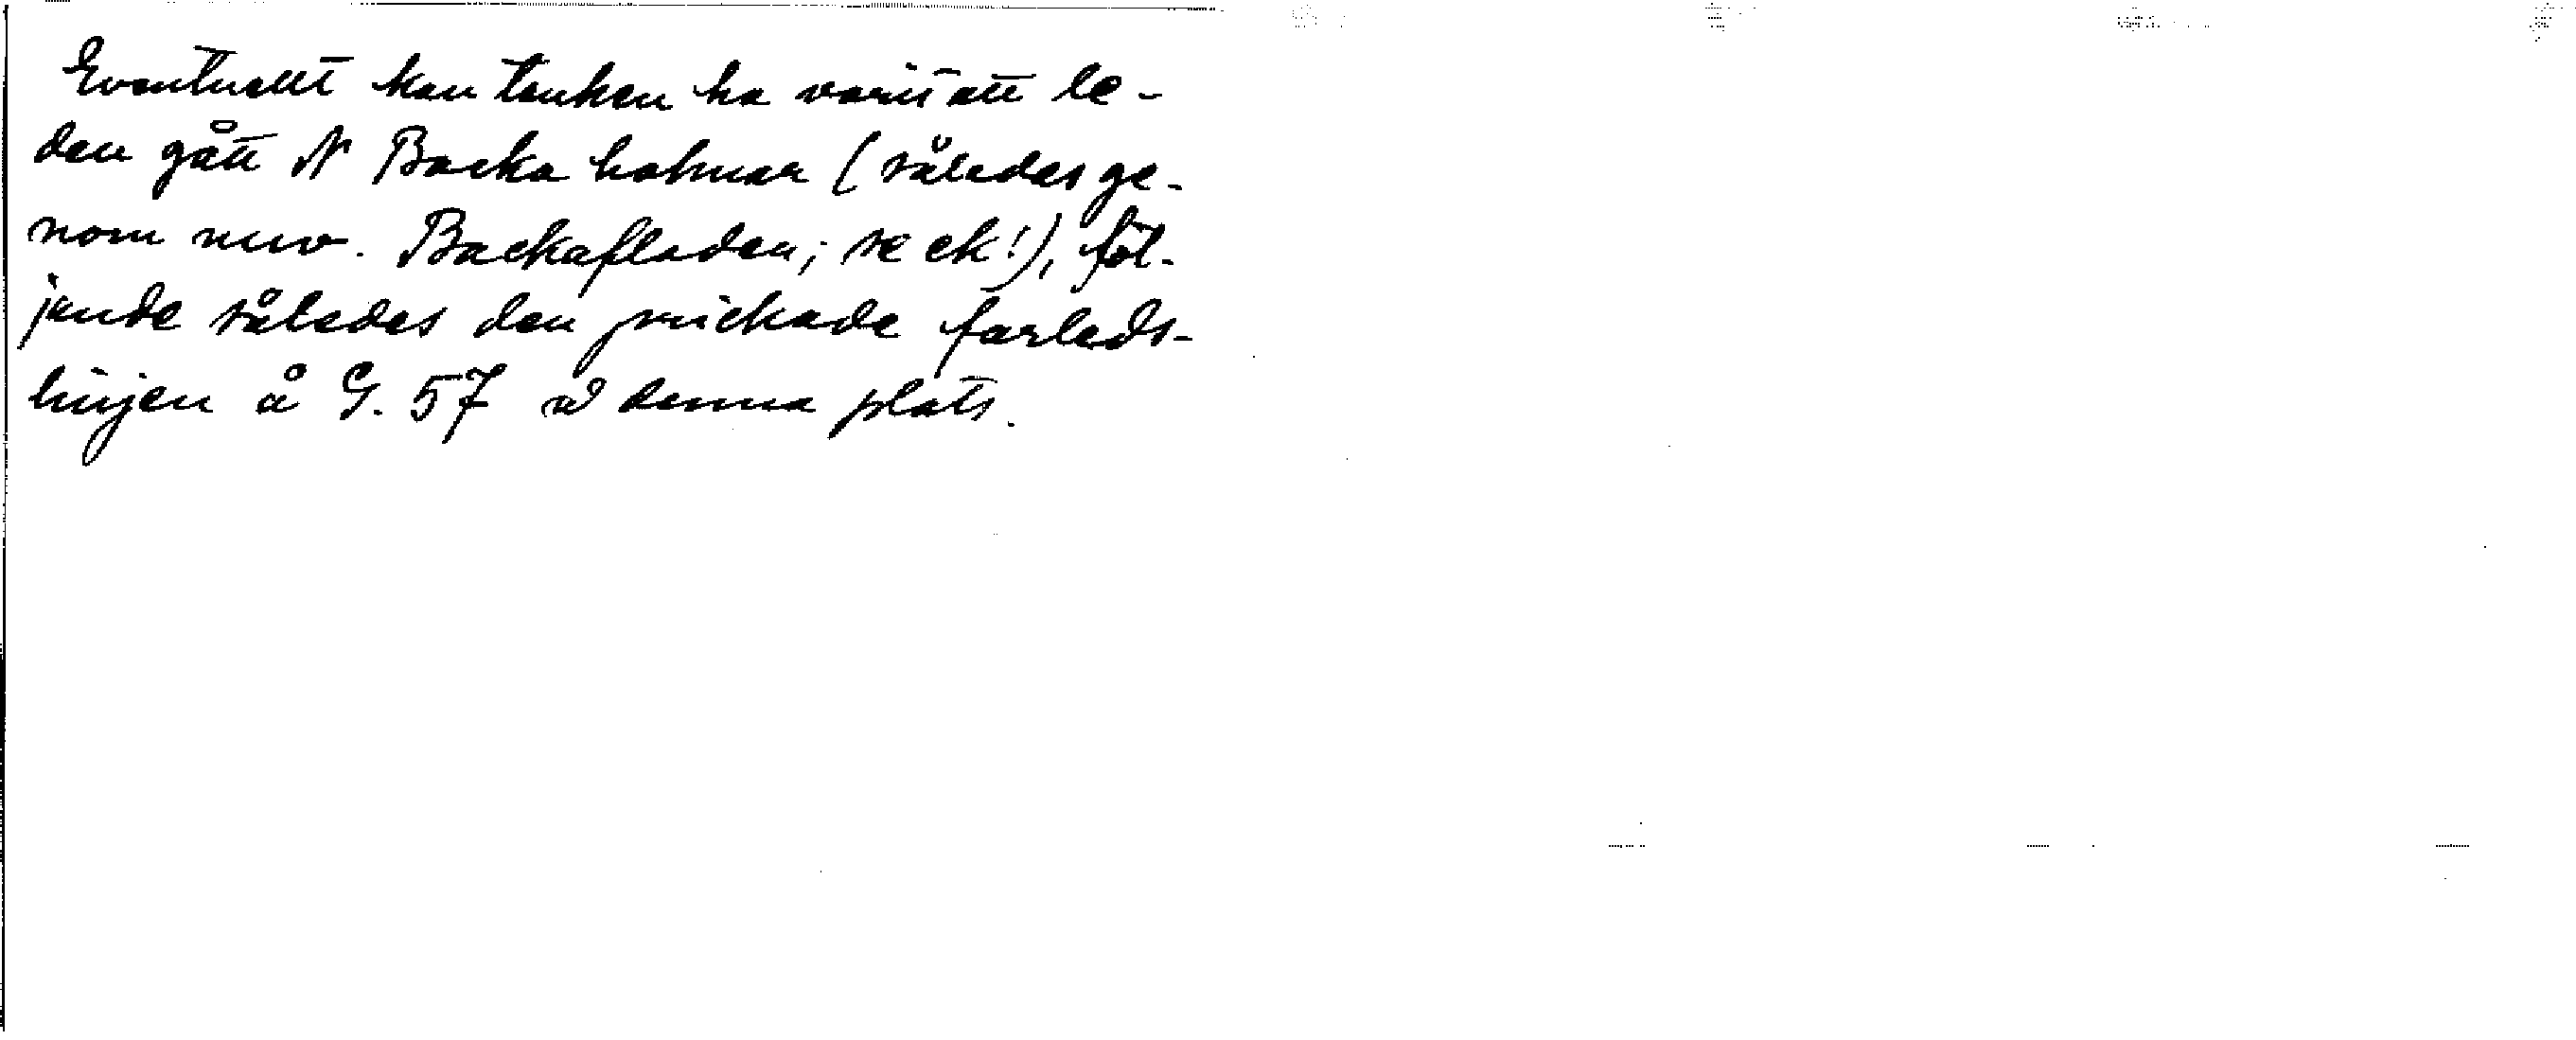 Eventuellt kan tanken ha varit att le-
den gått N Backa holmar (således ge-
nom nuv. Backafladen; se ek!), föl-
jande således den prickade farleds-
linjen å G. 57 vd denna plats.